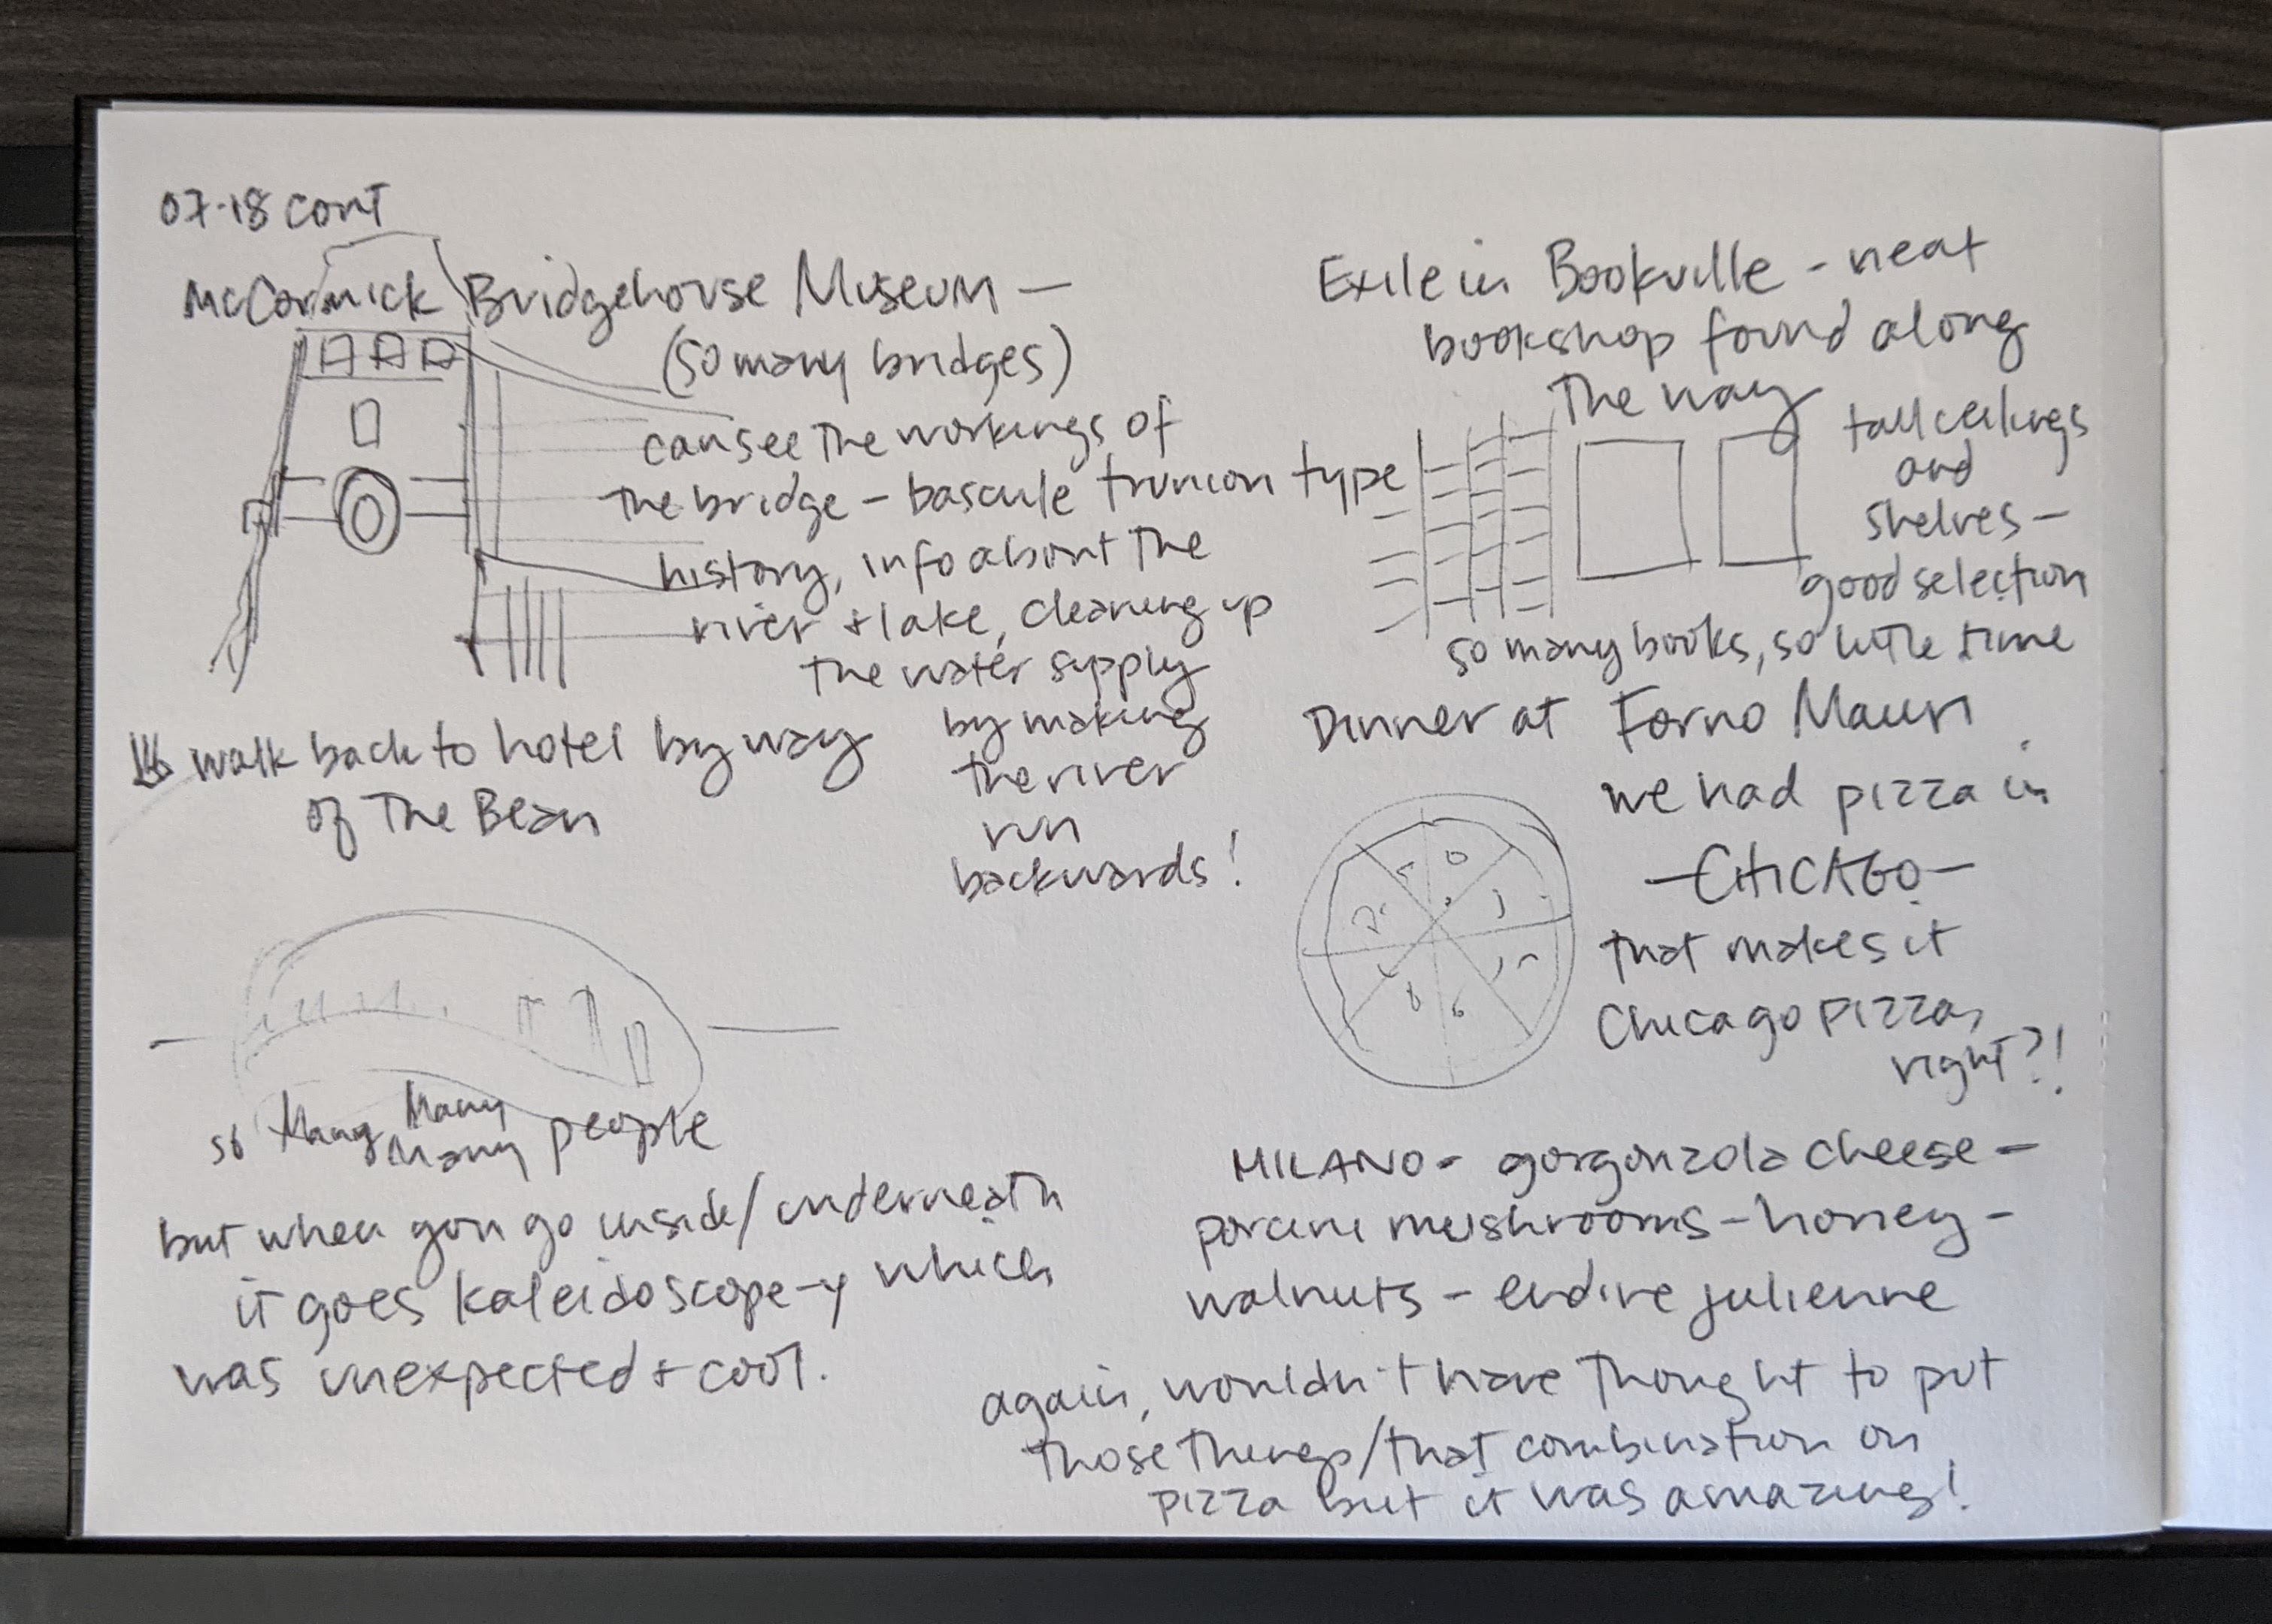 07-18 cont
McCormick Bridgehouse Museum —
(so many bridges)
can see the workings of
the bridge – bascule trunion type
history, info about the
river + lake, cleaning up
the water supply
by making
the river
run
backwards!
walk back to hotel by way
of The Bean
so Many Many
Many people
but when you go inside/underneath
it goes kaleidoscope-y which
was unexpected + cool.
Exile in Bookville – neat
bookshop found along
the way
tall ceilings
and
shelves –
good selection
so many books, so little time
Dinner at Forno Mauri
we had pizza in
– CHICAGO –
that makes it
Chicago pizza,
right?!
MILANO – gorgonzola cheese –
porcini mushrooms – honey –
walnuts – endive julienne
again, wouldn't have thought to put
those things/that combination on
pizza but it was amazing!